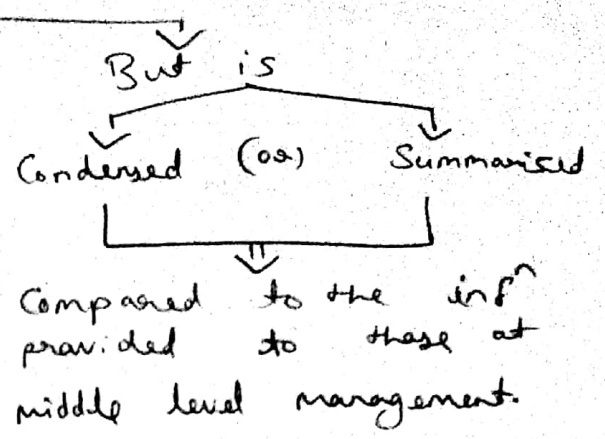 But is
Condensed (or) Summarised
Compared to the infⁿ
provided to those at
middle level management.